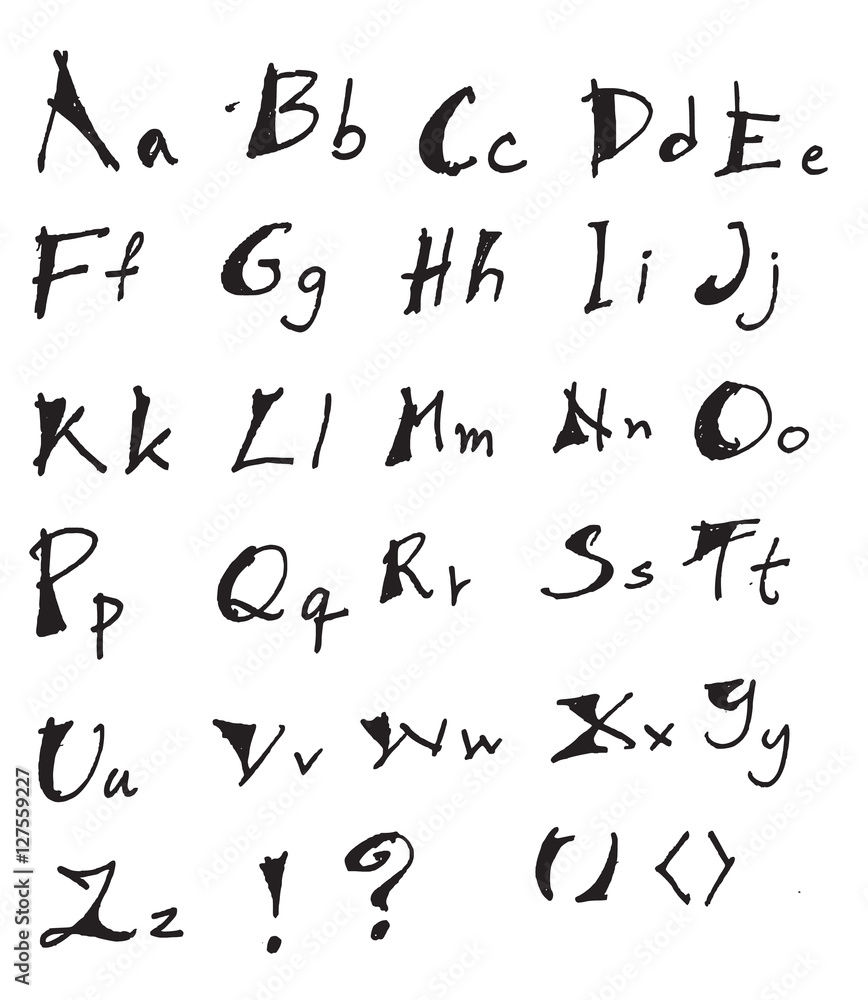 Aa Bb Cc Dd Ee
Ff Gg Hh Ii Jj
Kk Ll Mm Nn Oo
Pp Qq Rr Ss Tt
Uu Vv Ww Xx Yy
Zz ! ? () <>
Adobe Stock | #127559227